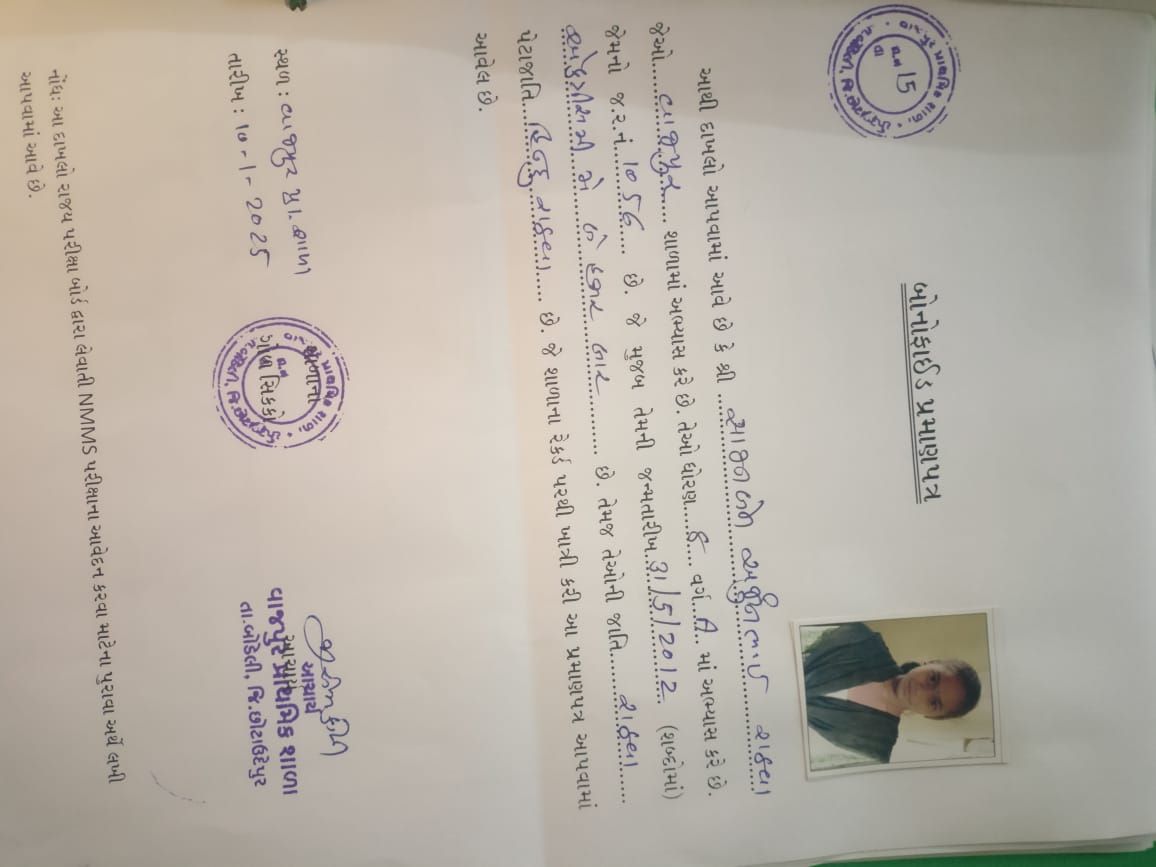 બોનોફાઈડ પ્રમાણપત્ર
આથી દાખલો આપવામાં આવે છે કે શ્રી .. અર્જુનભાઈ રાઠવા
જેઓ.... વાજપુર.... શાળામાં અભ્યાસ કરે છે. તેઓ ધોરણ.... વર્ગ.... માં અભ્યાસ કરે છે.
જેમનો જ.ર.નં.... 1056.... છે. જે મુજબ તેમની જન્મતારીખ.../5/2012. (શબ્દોમાં)
બે હજાર બાર.......... છે. તેમજ તેઓની જાતિ........ રાઠવા.......
પેટાજાતિ.... હિન્દુ રાઠવા.... છે. જે શાળાના રેકર્ડ પરથી ખાત્રી કરી આ પ્રમાણપત્ર આપવામાં
આવેલ છે.
સ્થળ : વાજપુર પ્રા. શાળા
તારીખ : 10-1-2025
શાળાનો
ગોળ સિક્કો
આચાર્ય
વાજપુર પ્રાથમિક શાળા
તા.બોડેલી, જિ.છોટાઉદેપુર
નોંધ: આ દાખલો રાજ્ય પરીક્ષા બોર્ડ દ્વારા લેવાતી NMMS પરીક્ષાના આવેદન કરવા માટેના પુરાવા અર્થે લખી
આપવામાં આવે છે.